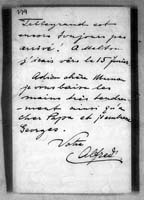 179
Pellegrand est
encore toujours pas
arrivé! A
j'étais vers le 15 février.
Adieu chère Maman
je vous baise les
mains très tendre-
ment ainsi qu'à
cher Papa et j'embrasse
Georges.
Votre
Alfred